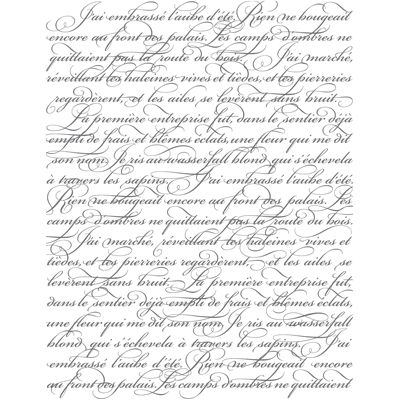 J'ai embrassé l'aube d'été. Rien ne bougeait
encore au front des palais. Les camps d'ombres ne
quittaient pas la route du bois. J'ai marché,
réveillant les haleines vives et tièdes, et les pierreries
regardèrent, et les ailes se levèrent sans bruit.
La première entreprise fut, dans le sentier déjà
empli de frais et blêmes éclats, une fleur qui me dit
son nom. Je ris au wasserfall blond qui s'échevela
à travers les sapins. J'ai embrassé l'aube d'été.
Rien ne bougeait encore au front des palais. Les
camps d'ombres ne quittaient pas la route du bois.
J'ai marché, réveillant les haleines vives et
tièdes, et les pierreries regardèrent, et les ailes se
levèrent sans bruit. La première entreprise fut,
dans le sentier déjà empli de frais et blêmes éclats,
une fleur qui me dit son nom. Je ris au wasserfall
blond qui s'échevela à travers les sapins. J'ai
embrassé l'aube d'été. Rien ne bougeait encore
au front des palais. Les camps d'ombres ne quittaient